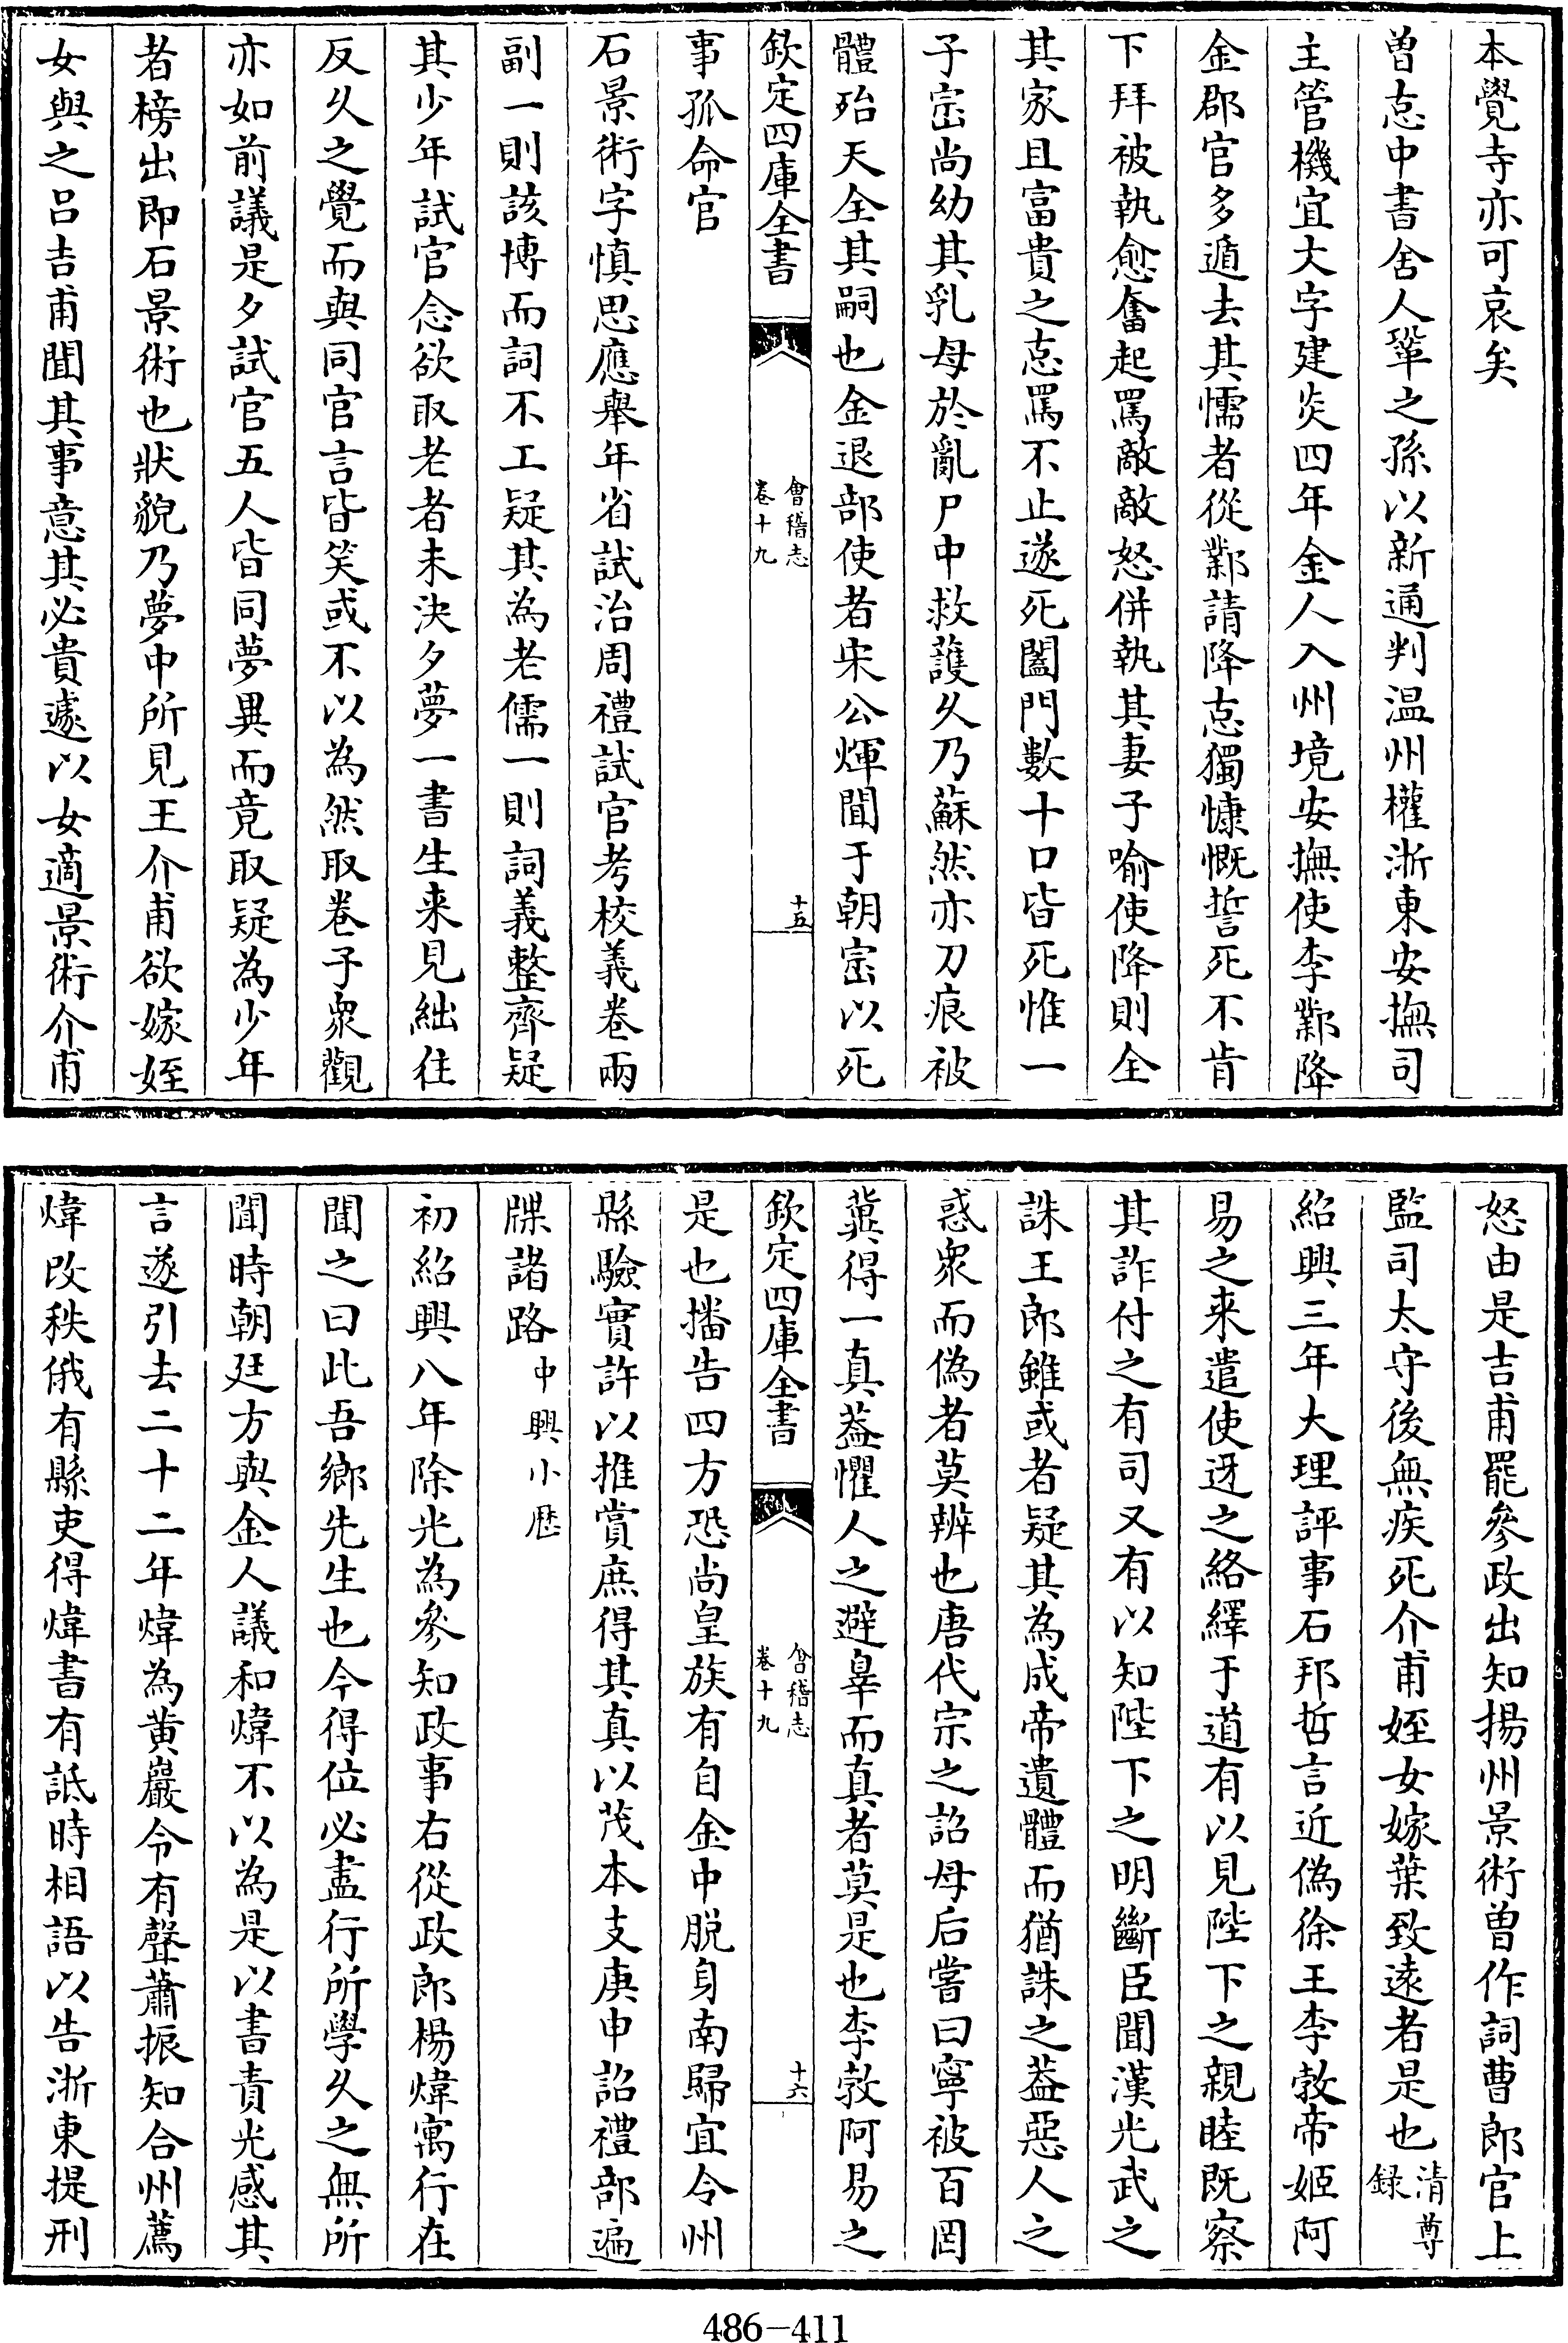 本覺寺亦可哀矣
曾怘中書舍人鞏之孫以新通判温州權浙東安撫司
主管機宜大字建炎四年金人入州境安撫使李鄴降
金郡官多遁去其懦者從鄴請降怘獨慷慨誓死不肯
下拜被執愈奮起罵敵敵怒併執其妻子喻使降則全
其家且富貴之怘罵不止遂死闔門數十口皆死惟一
子崈尚幼其乳母於亂尸中救䕶久乃蘇然亦刀痕被
體殆天全其嗣也金退部使者宋公煇聞于朝崈以死
欽定四庫全書
會稽志
卷十九
十五
事孤命官
石景術字慎思應舉年省試治周禮試官考校義卷兩
副一則該博而詞不工疑其為老儒一則詞義整齊疑
其少年試官念欲取老者未決夕夢一書生来見絀往
反久之覺而與同官言皆笑或不以為然取卷子衆觀
亦如前議是夕試官五人皆同夢異而竟取疑為少年
者榜出即石景術也狀貌乃夢中所見王介甫欲嫁姪
女與之吕吉甫聞其事意其必貴遽以女適景術介甫
怒由是吉甫罷參政出知揚州景術曽作詞曹郎官上
監司太守後無疾死介甫姪女嫁葉致遠者是也清尊
録
紹興三年大理評事石邦哲言近偽徐王李㪍帝姬阿
易之来遣使迓之絡繹于道有以見陛下之親睦既察
其詐付之有司又有以知陛下之明斷臣聞漢光武之
誅王郎雖或者疑其為成帝遺體而猶誅之葢惡人之
惑衆而偽者莫辨也唐代宗之詔母后嘗曰寧被百罔
兾得一真葢懼人之避辠而真者莫是也李㪍阿易之
欽定四庫全書
㑹稽志
卷十九
十六
是也播告四方恐尚皇族有自金中脱身南歸宜令州
縣驗實許以推賞庶得其真以茂本支庚申詔禮部遍
牒諸路中興小歴
初紹興八年除光為參知政事右從政郎楊煒寓行在
聞之曰此吾鄉先生也今得位必盡行所學久之無所
聞時朝廷方與金人議和煒不以為是以書責光感其
言遂引去二十二年煒為黄巖令有聲蕭振知合州薦
煒改秩俄有縣吏得煒書有詆時相語以告浙東提刑
486-411